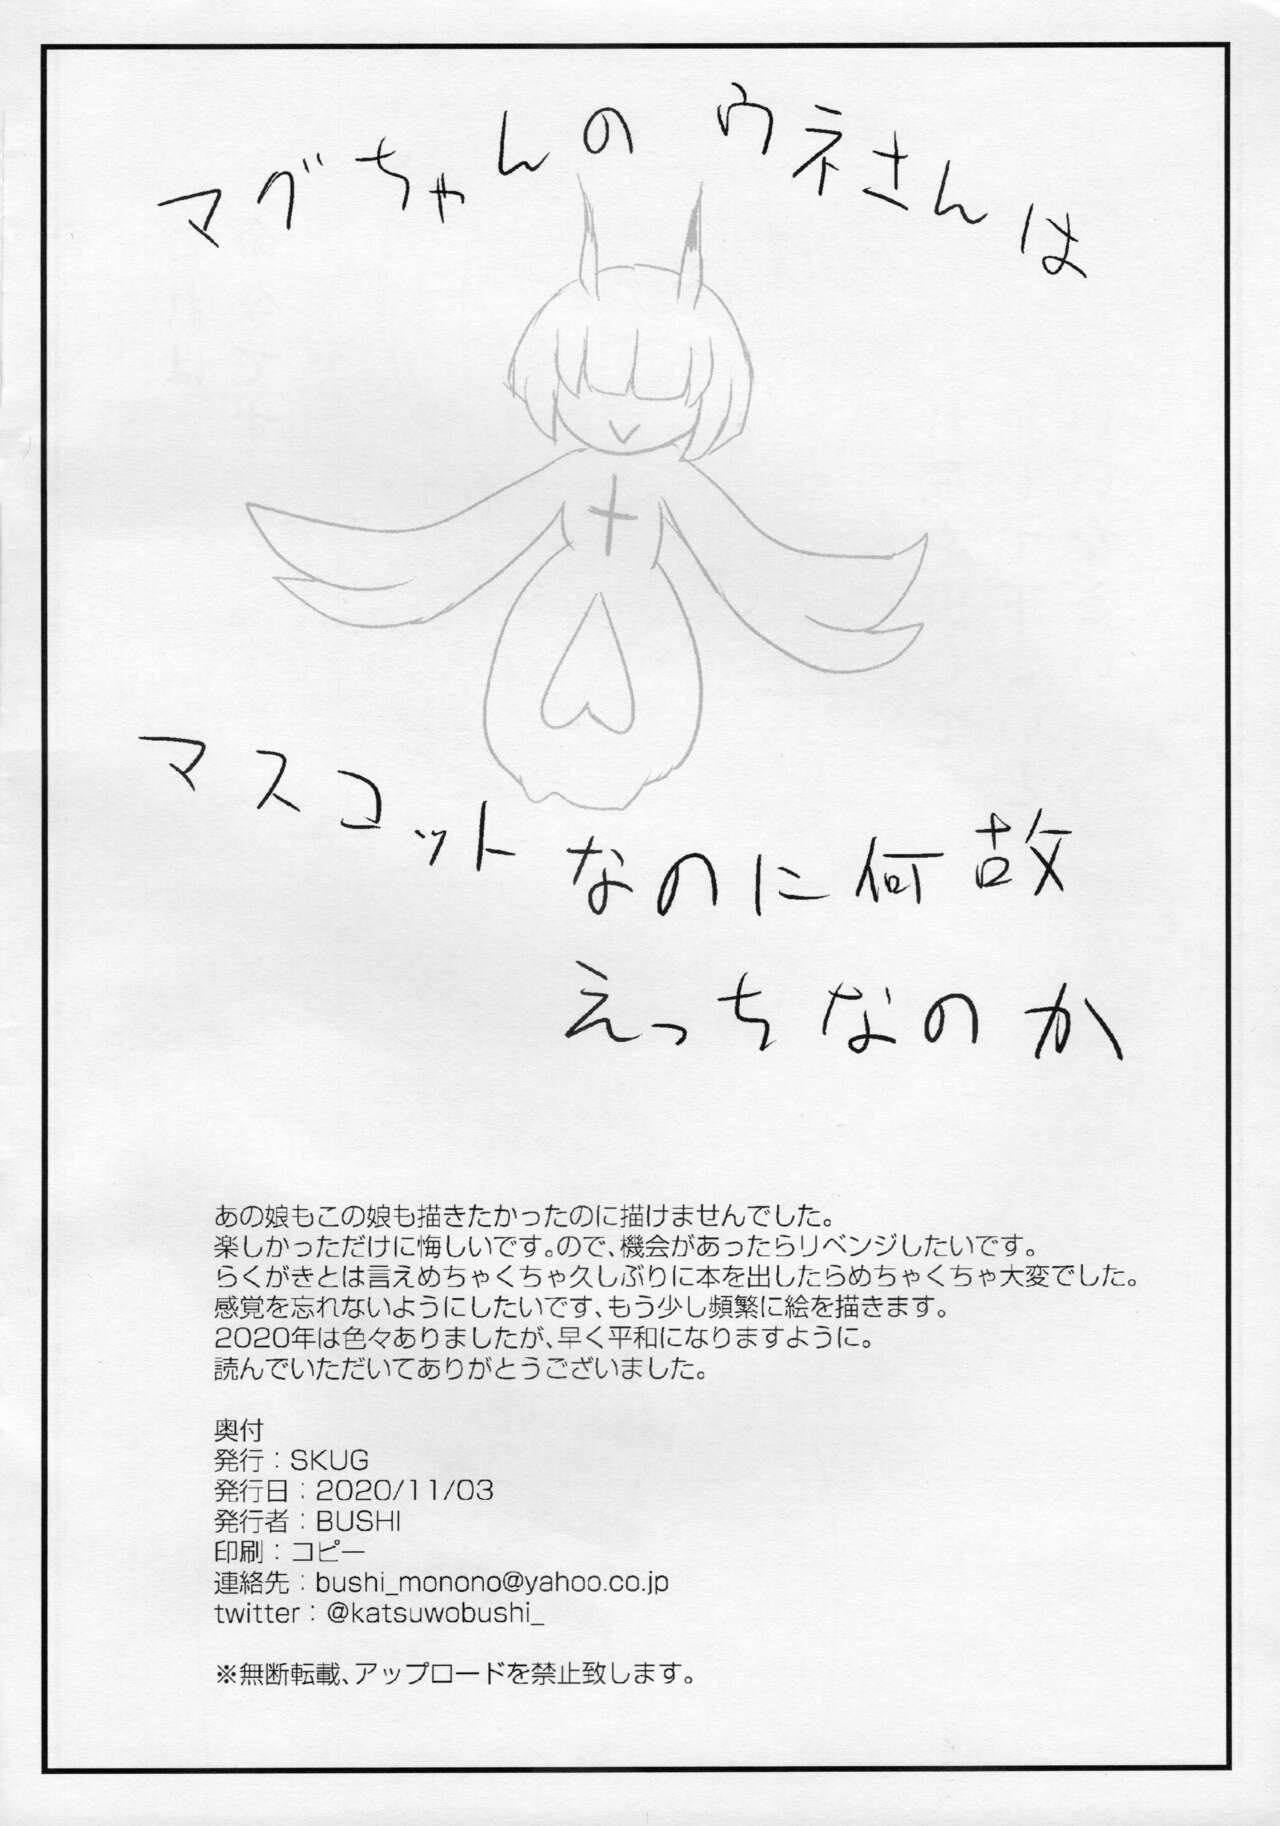 マグちゃんのウネさんは
マスコットなのに何故
えっちなのか
あの娘もこの娘も描きたかったのに描けませんでした。
楽しかっただけに悔しいです。ので、機会があったらリベンジしたいです。
らくがきとは言えめちゃくちゃ久しぶりに本を出したらめちゃくちゃ大変でした。
感覚を忘れないようにしたいです、もう少し頻繁に絵を描きます。
2020年は色々ありましたが、早く平和になりますように。
読んでいただいてありがとうございました。
奥付
発行：SKUG
発行日：2020/11/03
発行者：BUSHI
印刷：コピー
連絡先：bushi_monono@yahoo.co.jp
twitter：@katsuwobushi_
※無断転載、アップロードを禁止致します。